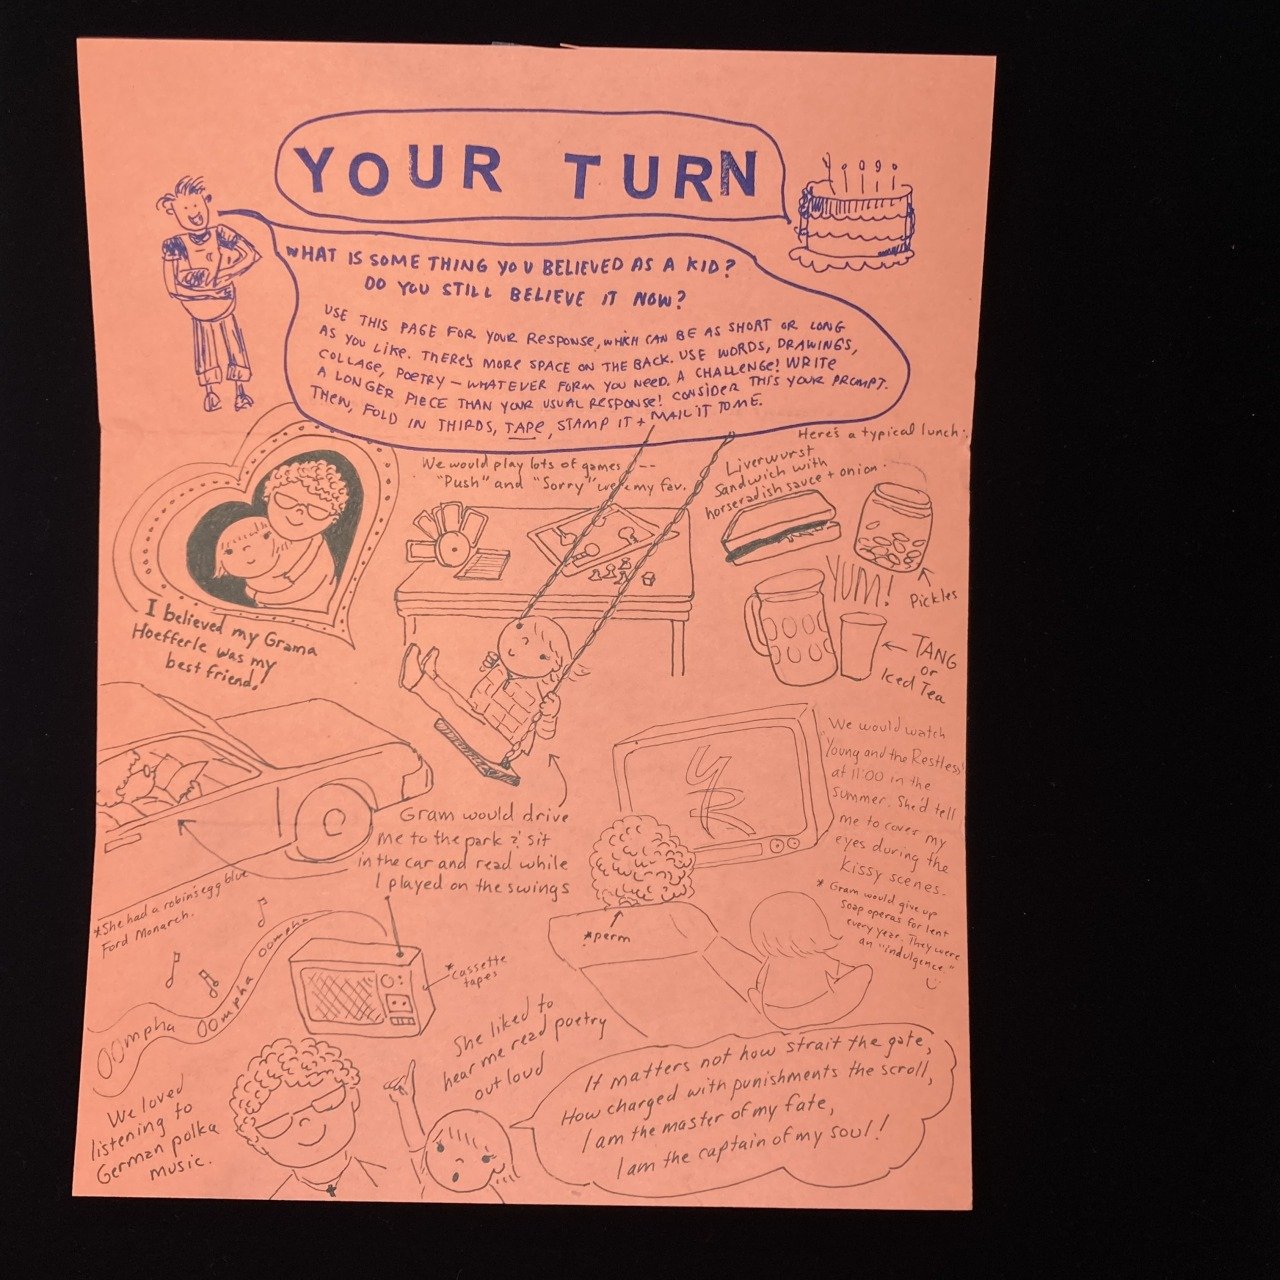 YOUR TURN
WHAT IS SOMETHING YOU BELIEVED AS A KID?
DO YOU STILL BELIEVE IT NOW?
USE THIS PAGE FOR YOUR RESPONSE, WHICH CAN BE AS SHORT OR LONG
AS YOU LIKE. THERE'S MORE SPACE ON THE BACK. USE WORDS, DRAWINGS,
COLLAGE, POETRY — WHATEVER FORM YOU NEED. A CHALLENGE! WRITE
A LONGER PIECE THAN YOUR USUAL RESPONSE! CONSIDER THIS YOUR PROMPT.
THEN, FOLD IN THIRDS, TAPE, STAMP IT + MAIL IT TO ME.
I believed my Grama
Hoefferle was my
best friend.
We would play lots of games --
"Push" and "Sorry" were my fav.
Here's a typical lunch:
Liverwurst
Sandwich with
horseradish sauce + onion.
YUM!
Pickles
TANG
or
Iced Tea
Gram would drive
me to the park & sit
in the car and read while
I played on the swings
*She had a robin's egg blue
Ford Monarch.
YR
We would watch
"Young and the Restless"
at 11:00 in the
summer. She'd tell
me to cover my
eyes during the
kissy scenes.
* Gram would give up
soap operas for lent
every year. They were
an "indulgence."
*perm
Oompha Oompha Oompha
*cassette
tapes
We loved
listening to
German polka
music.
She liked to
hear me read poetry
out loud
It matters not how strait the gate,
How charged with punishments the scroll,
I am the master of my fate,
I am the captain of my soul!